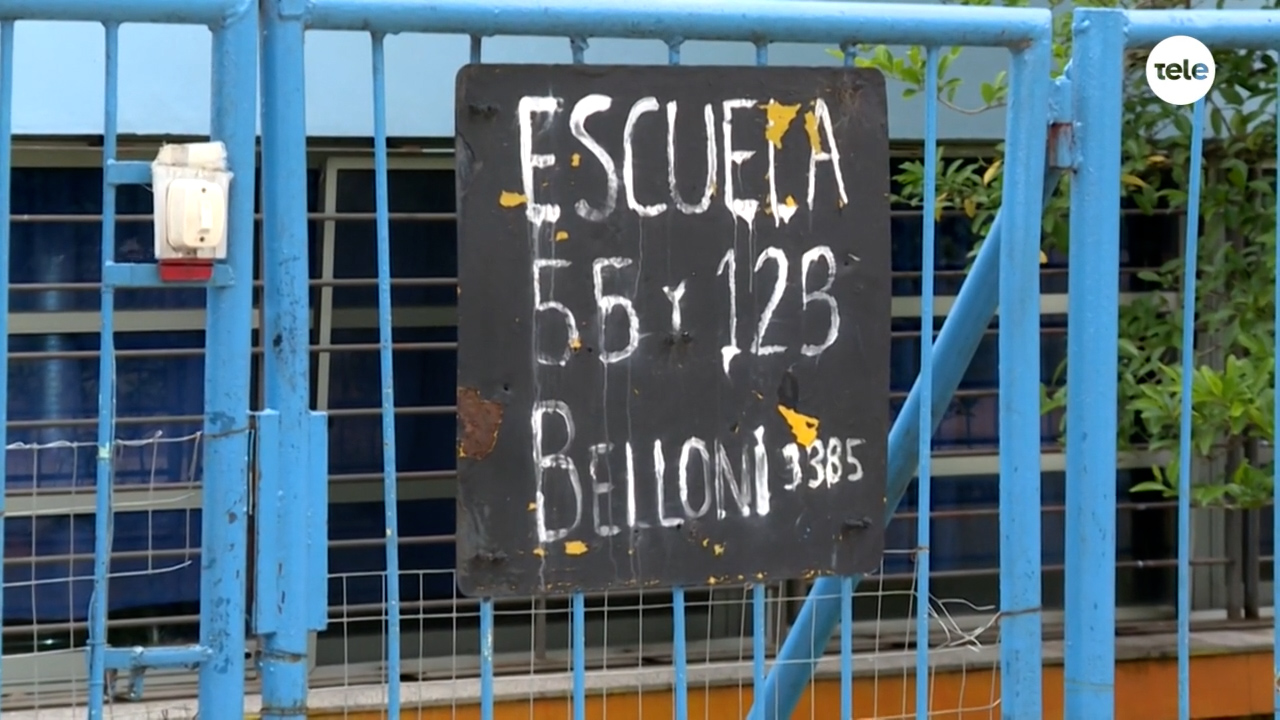 tele
ESCUELA
56 Y 123
BELLONI 3385